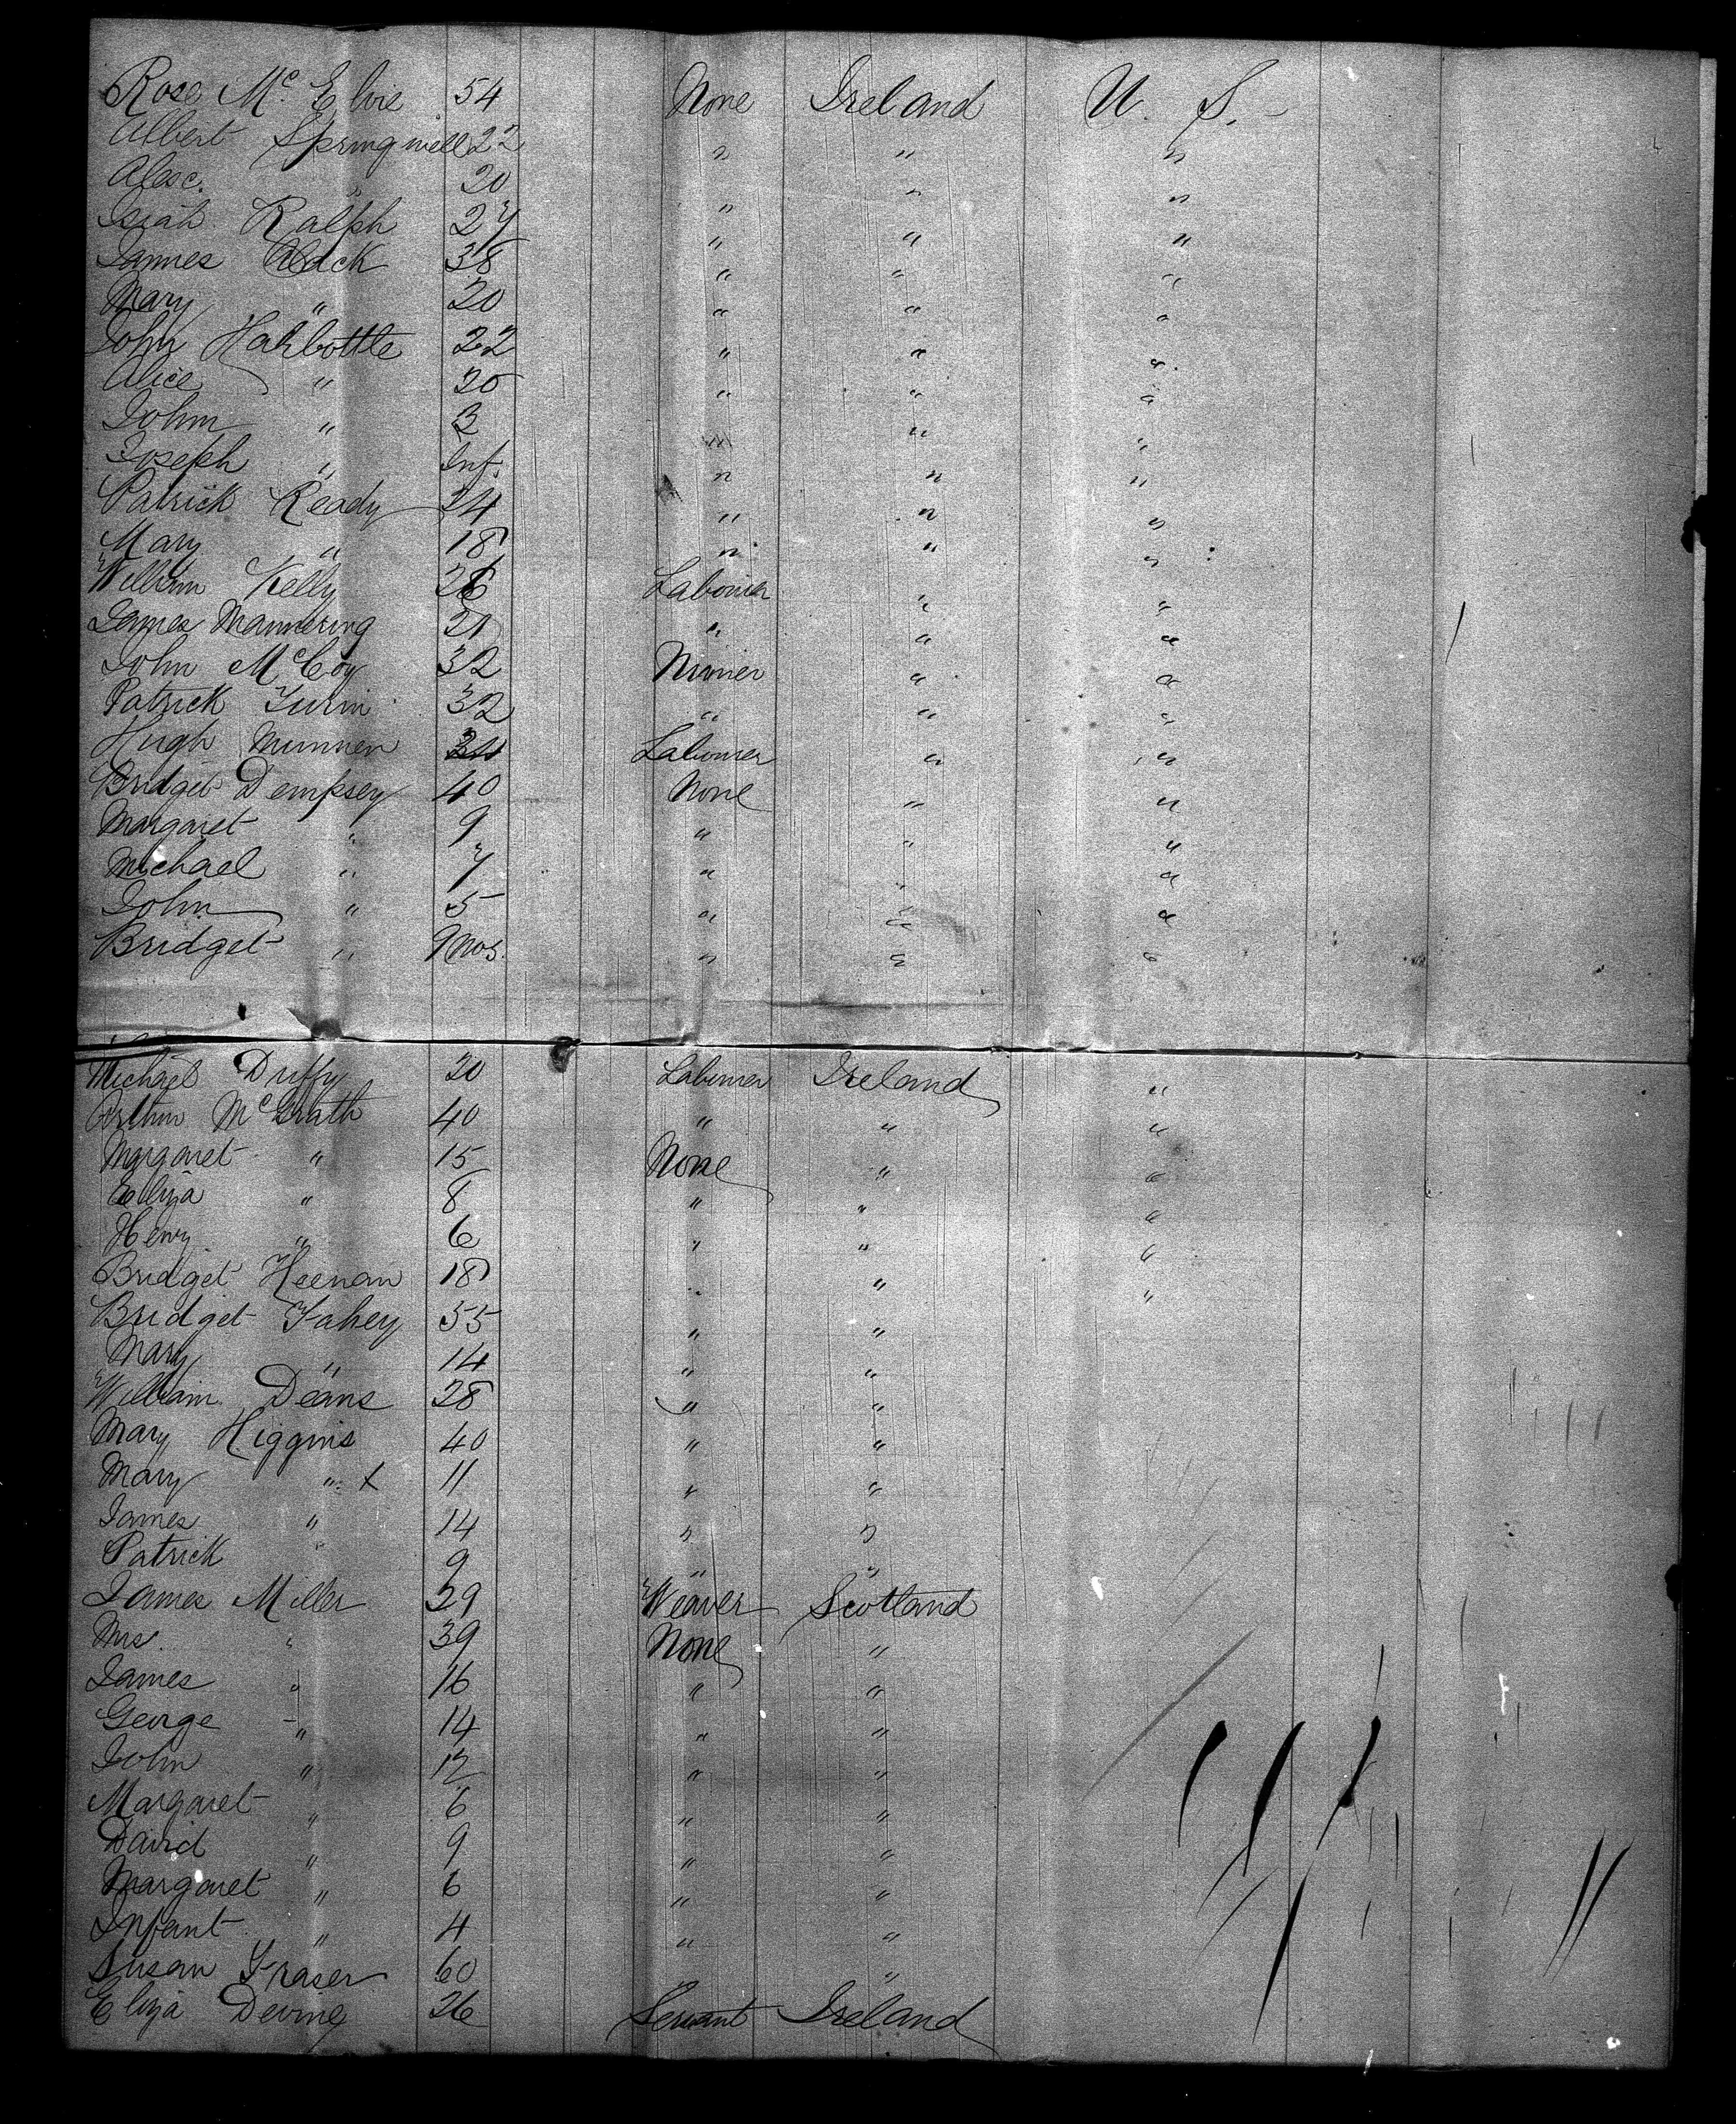 Rose McElvie 54 None Ireland U. S.
Albert Springwell 22 " " "
Alexc. " 20 " " "
Isiah Ralph 27 " " "
James 38 " " "
Mary " 20 " " "
John Harbottle 22 " " "
Alice " 20 " " "
John " 3 " " "
Joseph " Inf. " " "
Patrick Ready 24 " " "
Mary " 18 " " "
William Kelly 26 Labourer " "
James Mannering 21 " " "
John McCoy 32 Minier " "
Patrick 32 " " "
Hugh Labourer " "
Bridget Dempsey 40 None " "
Margaret " 9 " " "
Michael " 7 " " "
John " 5 " " "
Bridget " 9 mos. " " "
Michael Duffy 20 Labourer Ireland "
Arthur McGrath 40 " " "
Margaret " 15 None " "
Eliza " 8 " " "
Henry " 6 " " "
Bridget Heenan 18 " " "
Bridget Fahey 55 " "
Mary " 14 " "
William Deans 28 " "
Mary Higgins 40 " "
Mary " x 11 " "
James " 14 " "
Patrick " 9 " "
James Miller 39 Weaver Scotland
Mrs. " 39 None "
James " 16 " "
George " 14 " "
John " 12 " "
Margaret " 6 " "
David " 9 " "
Margaret " 6 " "
Infant " 4 " "
Susan Fraser 60 " "
Eliza Devine 26 Servant Ireland